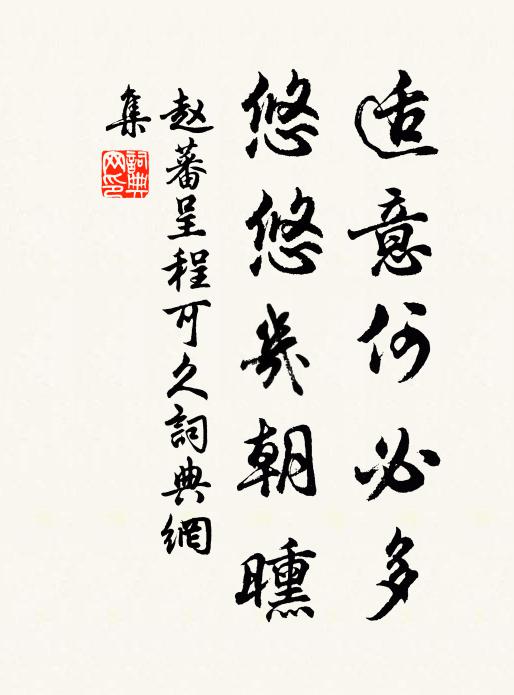 适意何必多
悠悠几朝曛
赵蕃呈程可久詞典網
集
詞典
网印